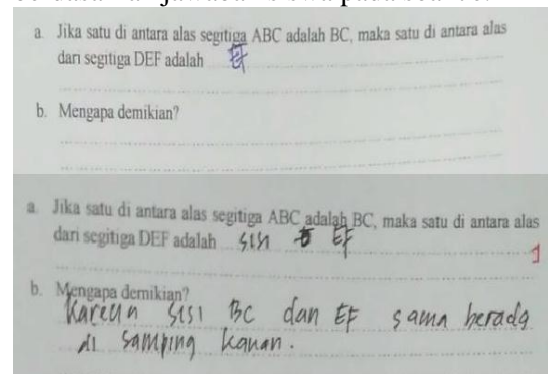 a. Jika satu di antara alas segitiga ABC adalah BC, maka satu di antara alas
dari segitiga DEF adalah EF
b. Mengapa demikian?
a. Jika satu di antara alas segitiga ABC adalah BC, maka satu di antara alas
dari segitiga DEF adalah sisi EF
1
b. Mengapa demikian?
Kareun sisi BC dan EF sama berada
di samping kanan.